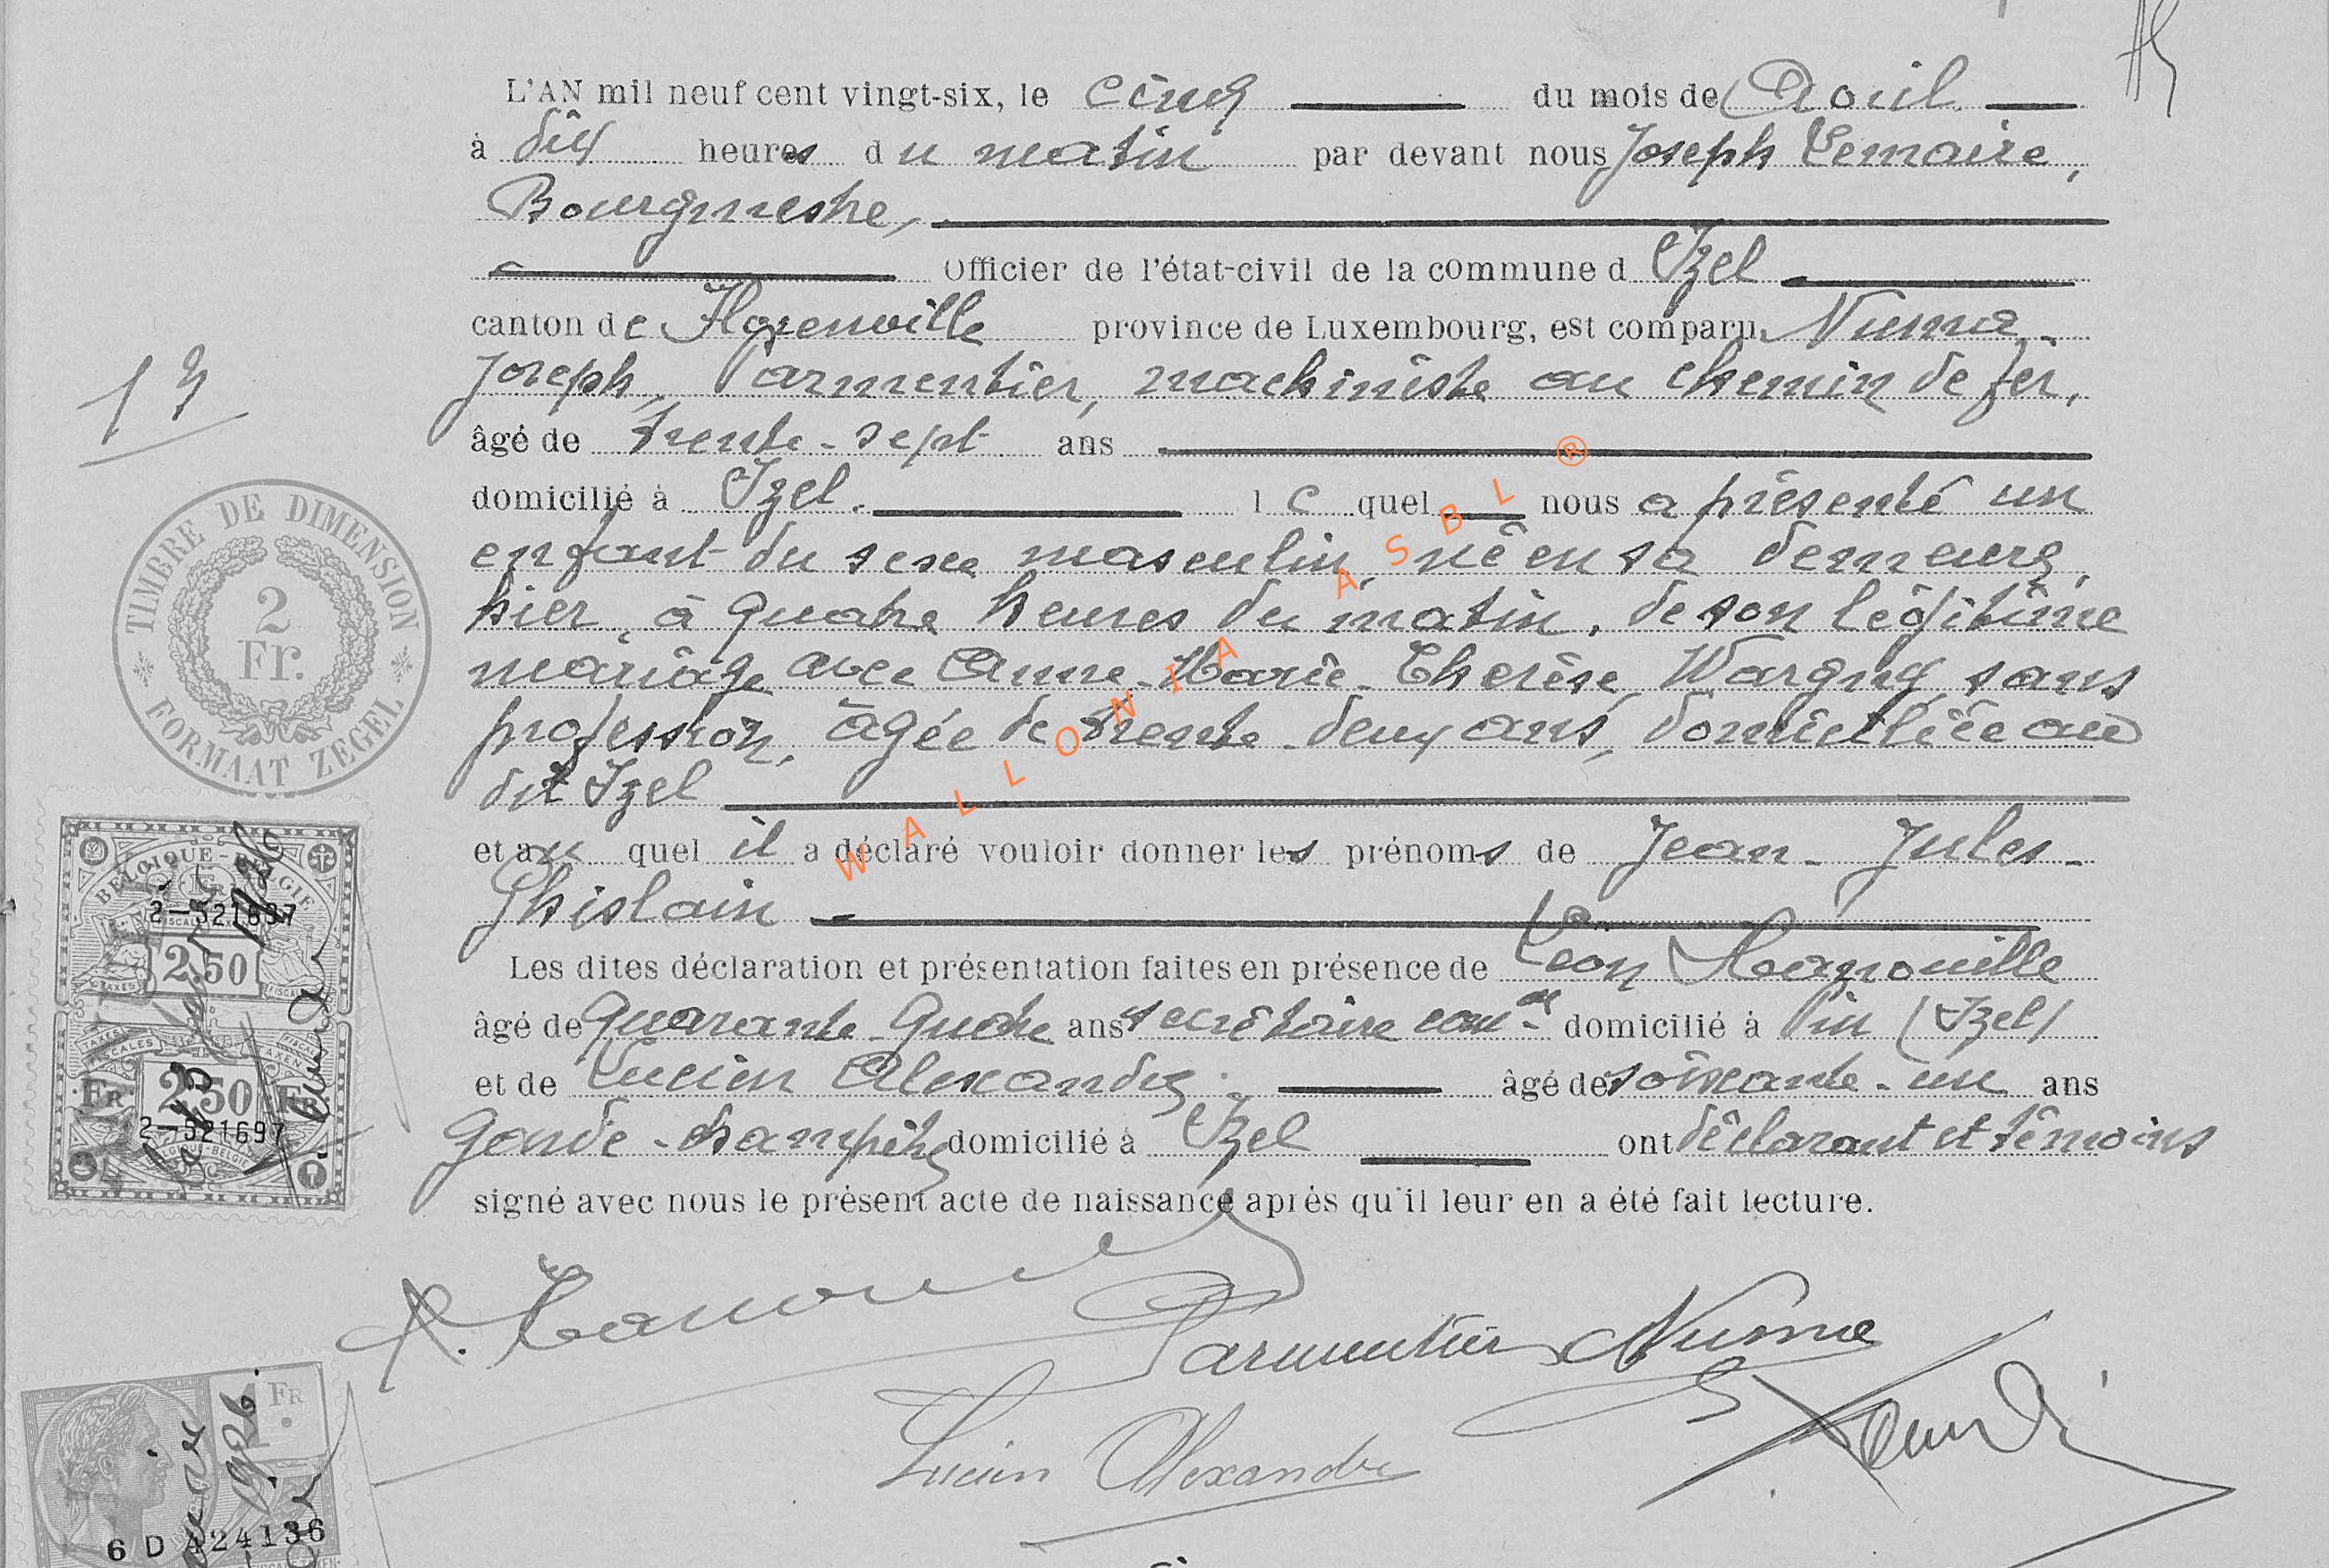 L'AN mil neuf cent vingt-six, le cinq du mois de Avril
à dix heures du matin par devant nous Joseph Lemaire,
Bourgmestre,
Officier de l'état-civil de la commune d Izel
canton de Florenville province de Luxembourg, est comparu Numa
Joseph, Parmentier, machiniste au chemin de fer,
âgé de trente-sept ans
domicilié à Izel. le quel nous a présenté un
enfant du sexe masculin, né en sa demeure,
hier, à quatre heures du matin, de son légitime
mariage avec Anne-Marie-Thérèse Wargny, sans
profession, âgée de trente-deux ans, domiciliée au
dit Izel
et au quel il a déclaré vouloir donner les prénoms de Jean-Jules-
Ghislain
Les dites déclaration et présentation faites en présence de Léon Hanouille
âgé de quarante-quatre ans secrétaire com-al domicilié à Pin (Izel)
et de Lucien Alexandre. âgé de soixante-un ans
garde-champêtre domicilié à Izel ont déclarant et témoins
signé avec nous le présent acte de naissance après qu'il leur en a été fait lecture.
Parmentier Numa
Lucien Alexandre
13
TIMBRE DE DIMENSION
2
Fr.
FORMAAT ZEGEL
BELGIQUE-BELGIE
2-521697
2.50
TAXES FISCALES
FR 2.50 FR
2-521697
FR
6 D 424136
WALLONIA ASBL ®